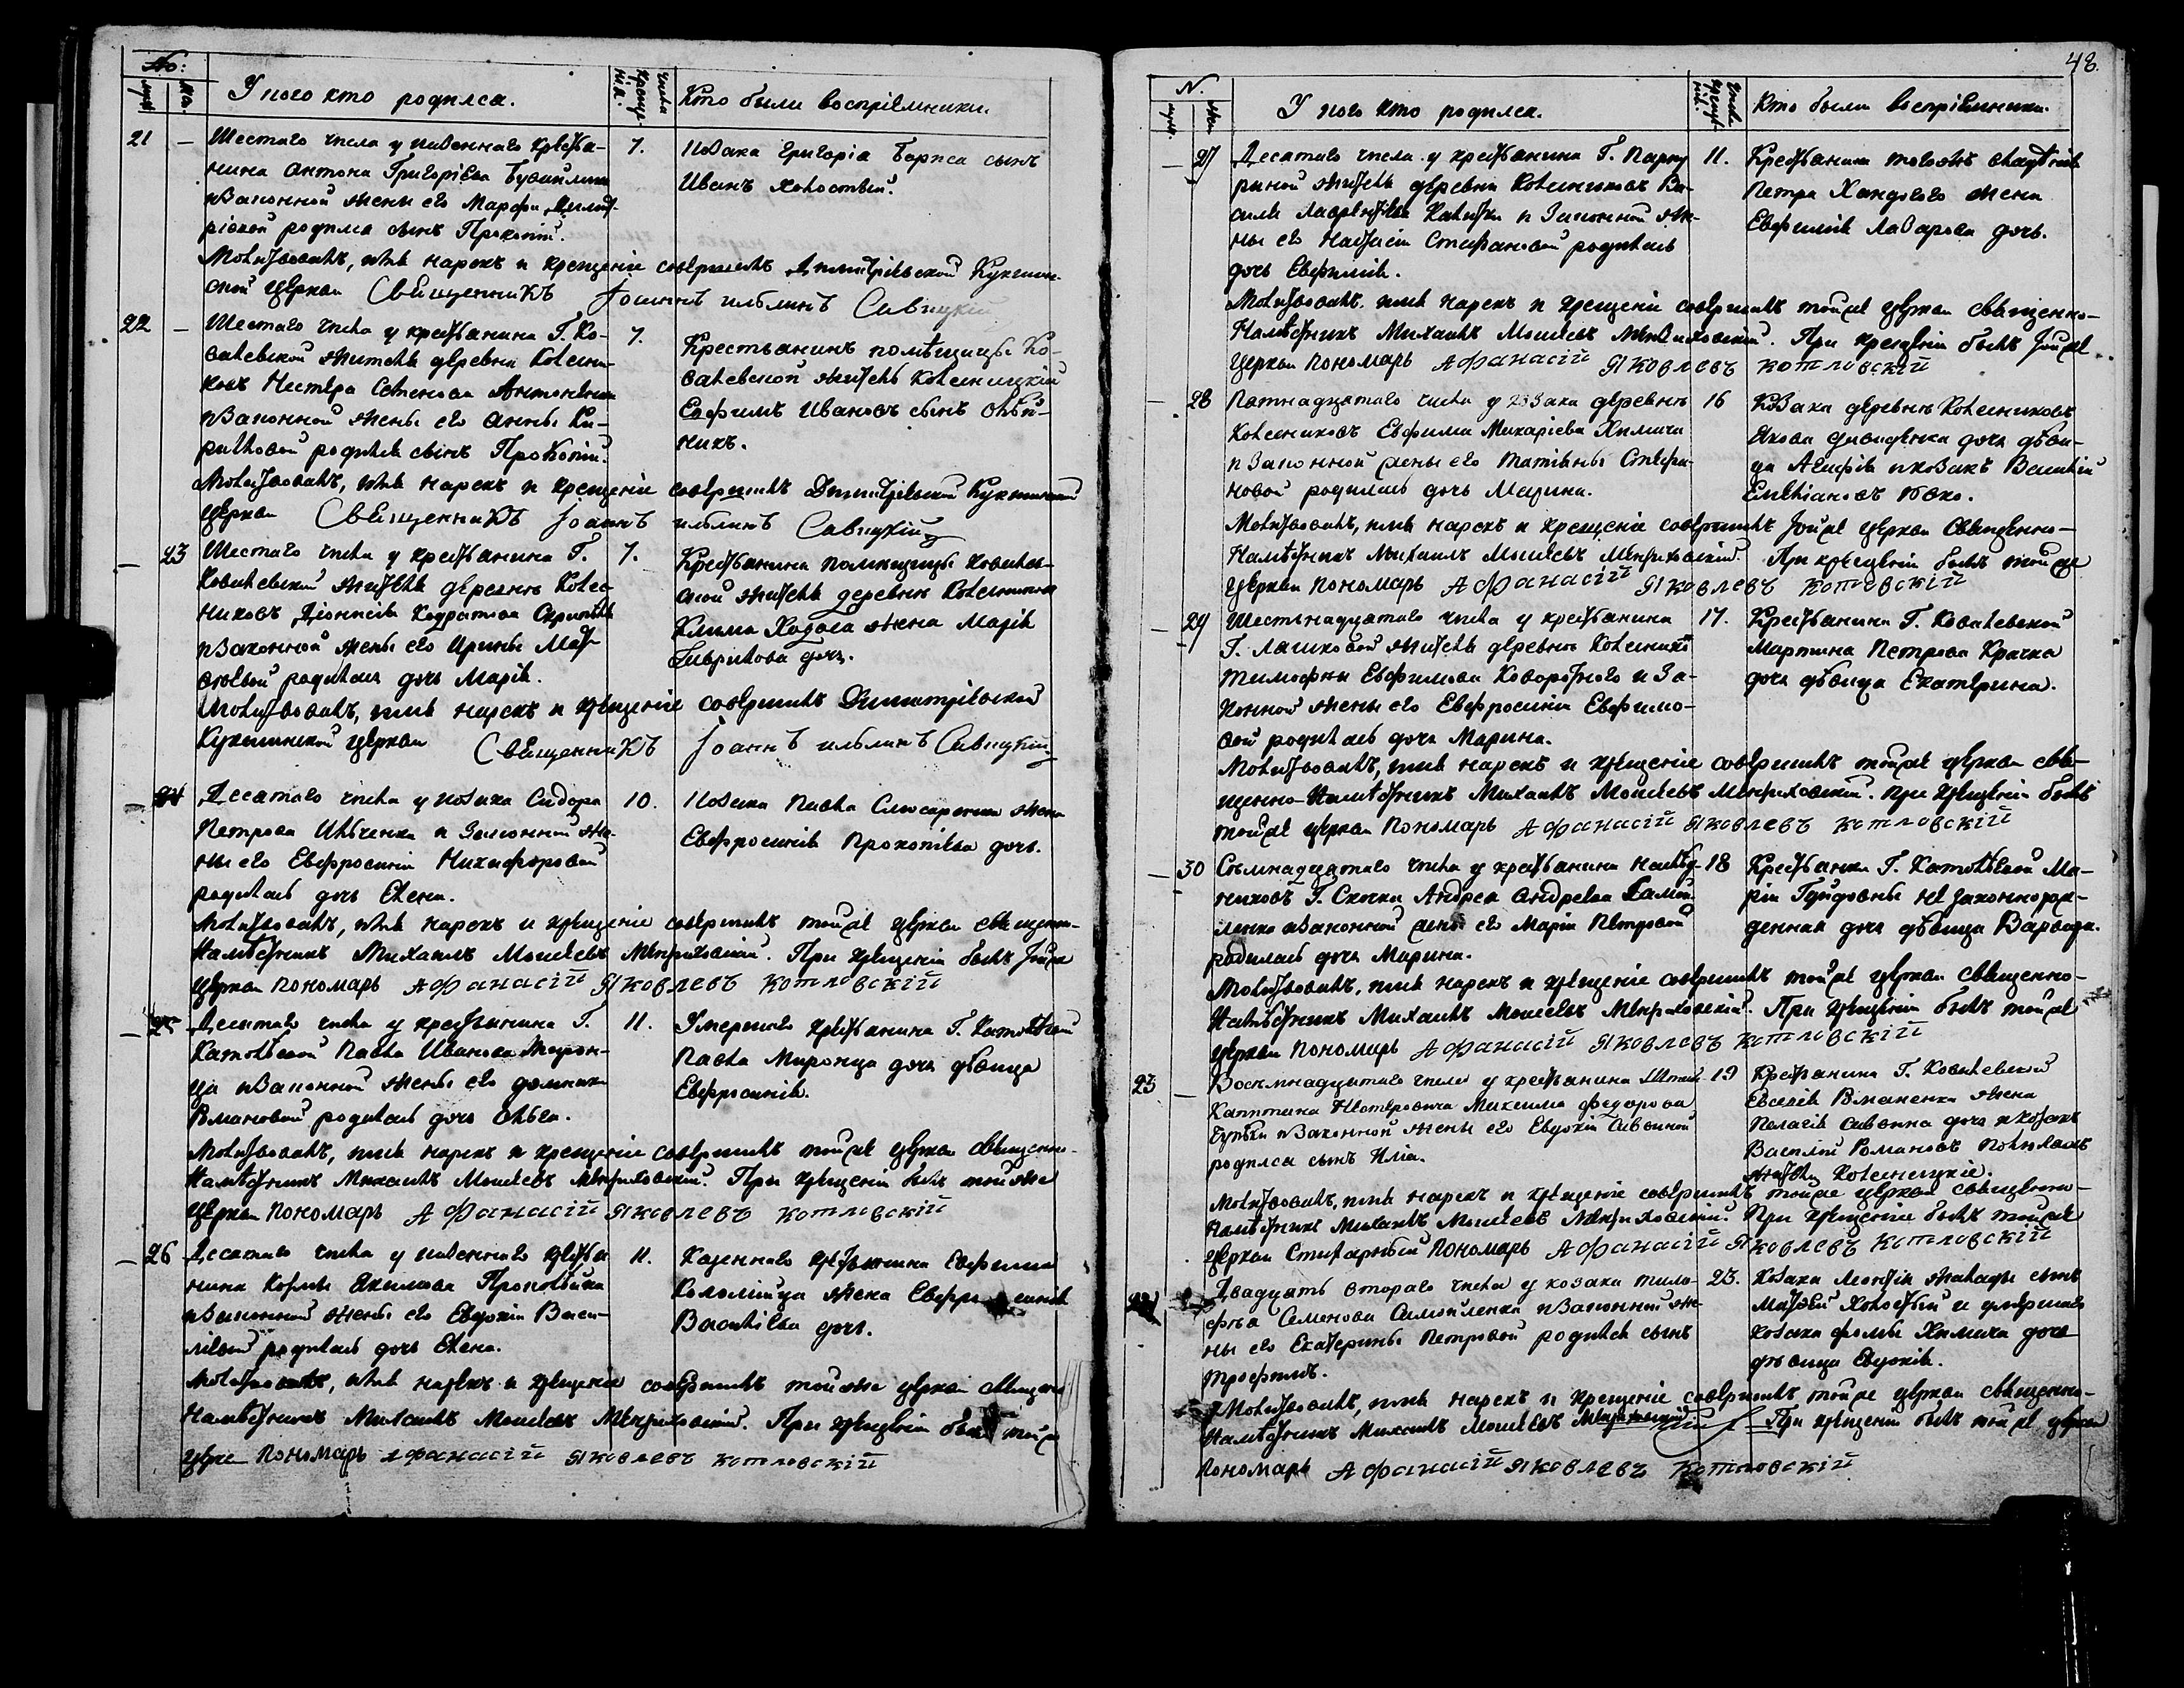 No:
муж.
жен.
У кого кто родился.
числа крещенія.
Кто были воспріемники.
21 — Шестаго числа у казеннаго крестья-
нина Антона Григоріева
и законной жены его Марфы Димит-
ріевой родился сынъ Прокопій.
7.
Козака Григорія сынъ
Иванъ холостый.
Молитвовалъ, имя нарекъ и крещеніе совершилъ Димитріевской
церкви Священникъ Іоаннъ Савицкій
22 — Шестаго числа у крестьянина Г. Ко-
валевской житель деревни Колесни-
ковъ Нестера Семенова
и законной жены его Анны Ки-
риловой родился сынъ Прокопій.
7.
Крестьянинъ помѣщицы Ко-
валевской житель Колесницкій
Евфимъ Ивановъ сынъ Олѣй-
никъ.
Молитвовалъ, имя нарекъ и крещеніе совершилъ Димитріевской
церкви Священникъ Іоаннъ Савицкій
— 23 Шестаго числа у крестьянина Г.
Ковалевской жителя деревни Колес-
никовъ Діонисія Кодратова
и законной жены его Ирины Мат-
вѣевой родилась дочь Марія.
7.
Крестьянина помѣщицы Ковалев-
ской жителя деревни
Клима Ходоса жена Марія
Гаврилова дочь.
Молитвовалъ, имя нарекъ и крещеніе совершилъ Димитріевской
церкви Священникъ Іоаннъ Савицкій
— 24 Десятаго числа у козака Сидора
Петрова и законной же-
ны его Евфросиніи Никифоровой
родилась дочь Елена.
10.
Козака Павла Слюсаренка жена
Евфросинія Прокопіева дочь.
Молитвовалъ, имя нарекъ и крещеніе совершилъ тойже церкви священно-
Намѣстникъ Михаилъ Моисеевъ. При крещеніи былъ тойже
церкви Пономарь Афанасій Яковлевъ Котловскій
— 25 Десятаго числа у крестьянина Г.
Павла Иванова Мирон-
ца и законной жены его Домникіи
Романовой родилась дочь Ольга.
11.
Умершаго крестьянина Г.
Павла Миронца дочь дѣвица
Евфросинія.
Молитвовалъ, имя нарекъ и крещеніе совершилъ тойже церкви священно-
Намѣстникъ Михаилъ Моисеевъ. При крещеніи былъ тойже
церкви Пономарь Афанасій Яковлевъ Котловскій
— 26 Десятаго числа у казеннаго крестья-
нина Козмы Якимова
и законной жены его Евдокіи Васи-
ліевой родилась дочь Елена.
11.
Казеннаго крестьянина Евфимія
Коломійца жена Евфросинія
Василіева дочь.
Молитвовалъ, имя нарекъ и крещеніе совершилъ тойже церкви священно
Намѣстникъ Михаилъ Моисеевъ. При крещеніи былъ тойже
церкви Пономарь Афанасій Яковлевъ Котловскій
48.
N.
муж.
жен.
У кого кто родился.
числа крещенія.
Кто были воспріемники.
— 27 Десятаго числа у крестьянина Г.
жителя деревни Колесниковъ Ва-
силія Лаврентіева и законной же-
ны его Настасіи Стефановой родилась
дочь Евфимія.
11.
Крестьянина
Петра жена
Евфимія Лазарева дочь.
Молитвовалъ, имя нарекъ и крещеніе совершилъ тойже церкви священно-
Намѣстникъ Михаилъ Моисеевъ. При крещеніи былъ тойже
церкви Пономарь Афанасій Яковлевъ Котловскій
— 28 Пятнадцатаго числа у козака деревни
Колесниковъ Евфима Макаріева Химича
и законной жены его Татіаны Стефа-
новой родилась дочь Марина.
16
Козака деревни Колесниковъ
Якова дочь дѣви-
ца Агафія и козакъ Василій
Емеліановъ.
Молитвовалъ, имя нарекъ и крещеніе совершилъ тойже церкви Священно-
Намѣстникъ Михаилъ Моисеевъ. При крещеніи былъ тойже
церкви Пономарь Афанасій Яковлевъ Котловскій
— 29 Шестнадцатаго числа у крестьянина
Г. Лашковой жителя деревни Колесников
Тимофея Евфимова и за-
конной жены его Евфросиніи Евфимо-
вой родилась дочь Марина.
17.
Крестьянина Г. Ковалевской
Мартина Петрова Крачка
дочь дѣвица Екатерина.
Молитвовалъ, имя нарекъ и крещеніе совершилъ тойже церкви свя-
щенно-Намѣстникъ Михаилъ Моисеевъ. При крещеніи былъ
тойже церкви Пономарь Афанасій Яковлевъ Котловскій
— 30 Семнадцатаго числа у крестьянина наслѣд-
никовъ Г. Андрея Андреева Самой-
ленка и законной жены его Маріи Петровой
родилась дочь Марина.
18
Крестьянки Г. Ма-
ріи незаконнорож-
денная дочь дѣвица Варвара.
Молитвовалъ, имя нарекъ и крещеніе совершилъ тойже церкви священно-
Намѣстникъ Михаилъ Моисеевъ. При крещеніи былъ тойже
церкви Пономарь Афанасій Яковлевъ Котловскій
23 — Восемнадцатаго числа у крестьянина
Капитана Нестеровича Максима Федорова
и законной жены его Евдокіи Савиной
родился сынъ Илія.
19
Крестьянина Г. Ковалевской
Евсевія Романенка жена
Пелагія Савина дочь и козакъ
Василій Романовъ
жители Колесницкіе.
Молитвовалъ, имя нарекъ и крещеніе совершилъ тойже церкви священно-
Намѣстникъ Михаилъ Моисеевъ. При крещеніи былъ тойже
церкви Стихарный Пономарь Афанасій Яковлевъ Котловскій
Двадцать втораго числа у козака Тимо-
фѣя Семенова Самойленка и законной же-
ны его Екатерины Петровой родился сынъ
Трофимъ.
23.
Козака Леонтія сынъ
Матвей холостый и умершаго
козака Фомы Химича дочь
дѣвица Евдокія.
Молитвовалъ, имя нарекъ и крещеніе совершилъ тойже церкви священно-
Намѣстникъ Михаилъ Моисеевъ При крещеніи былъ тойже церкви
Пономарь Афанасій Яковлевъ Котловскій